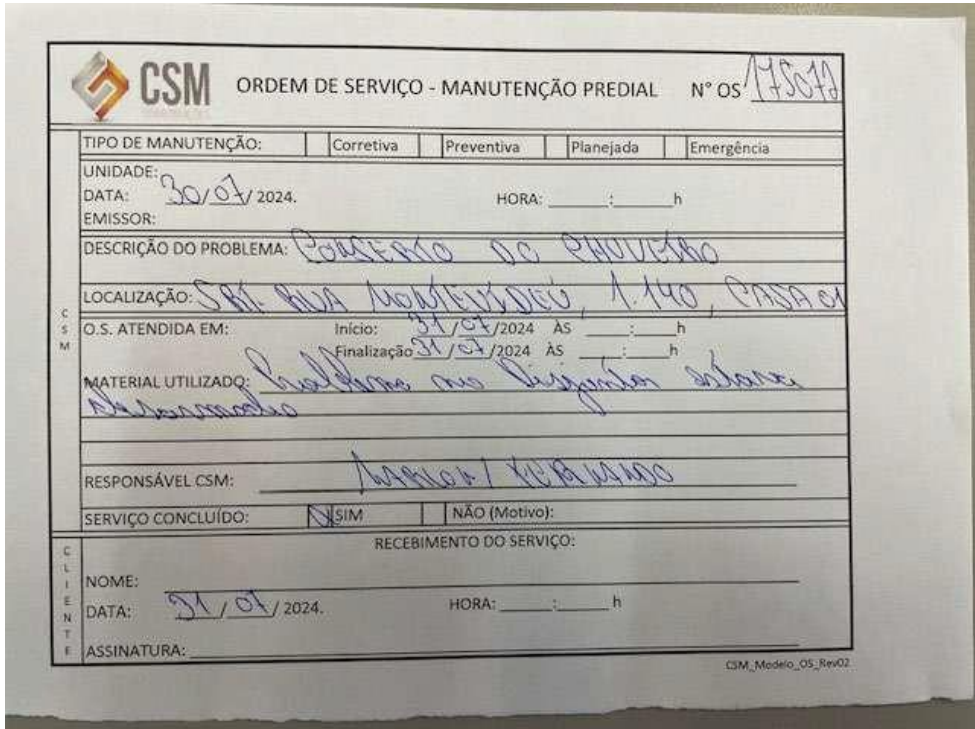 CSM ORDEM DE SERVIÇO - MANUTENÇÃO PREDIAL N° OS 175072
TIPO DE MANUTENÇÃO: Corretiva Preventiva Planejada Emergência
UNIDADE:
DATA: 30/07/2024. HORA: ____:____h
EMISSOR:
DESCRIÇÃO DO PROBLEMA: CONSERTO DO CHUVEIRO
LOCALIZAÇÃO: SRI. RUA MONTEVIDEÚ, 1.140, CASA 01
O.S. ATENDIDA EM: Início: 31/07/2024 ÀS ____:____h
Finalização 31/07/2024 ÀS ____:____h
MATERIAL UTILIZADO: Problema no Disjuntor estava
desarmando
RESPONSÁVEL CSM: / FERNANDO
SERVIÇO CONCLUÍDO: X SIM NÃO (Motivo):
RECEBIMENTO DO SERVIÇO:
NOME:
DATA: 31/07/2024. HORA: ____:____h
ASSINATURA:
CSM
CLIENTE
CSM_Modelo_OS_Rev02